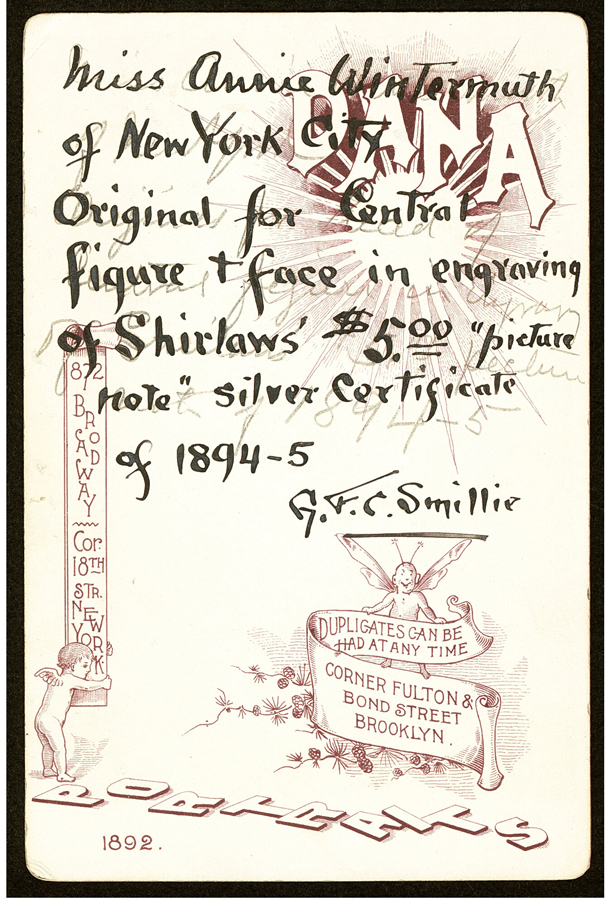 Miss Annie Wintermuth
of New York City
Original for Central
figure + face in engraving
of Shirlaws' $5.00 "picture
note" silver Certificate
of 1894-5
G.F.C. Smillie
DANA
872
BROADWAY
Cor.
18TH
STR.
NEW
YORK
DUPLICATES CAN BE
HAD AT ANY TIME
CORNER FULTON &
BOND STREET
BROOKLYN.
PORTRAITS
1892.